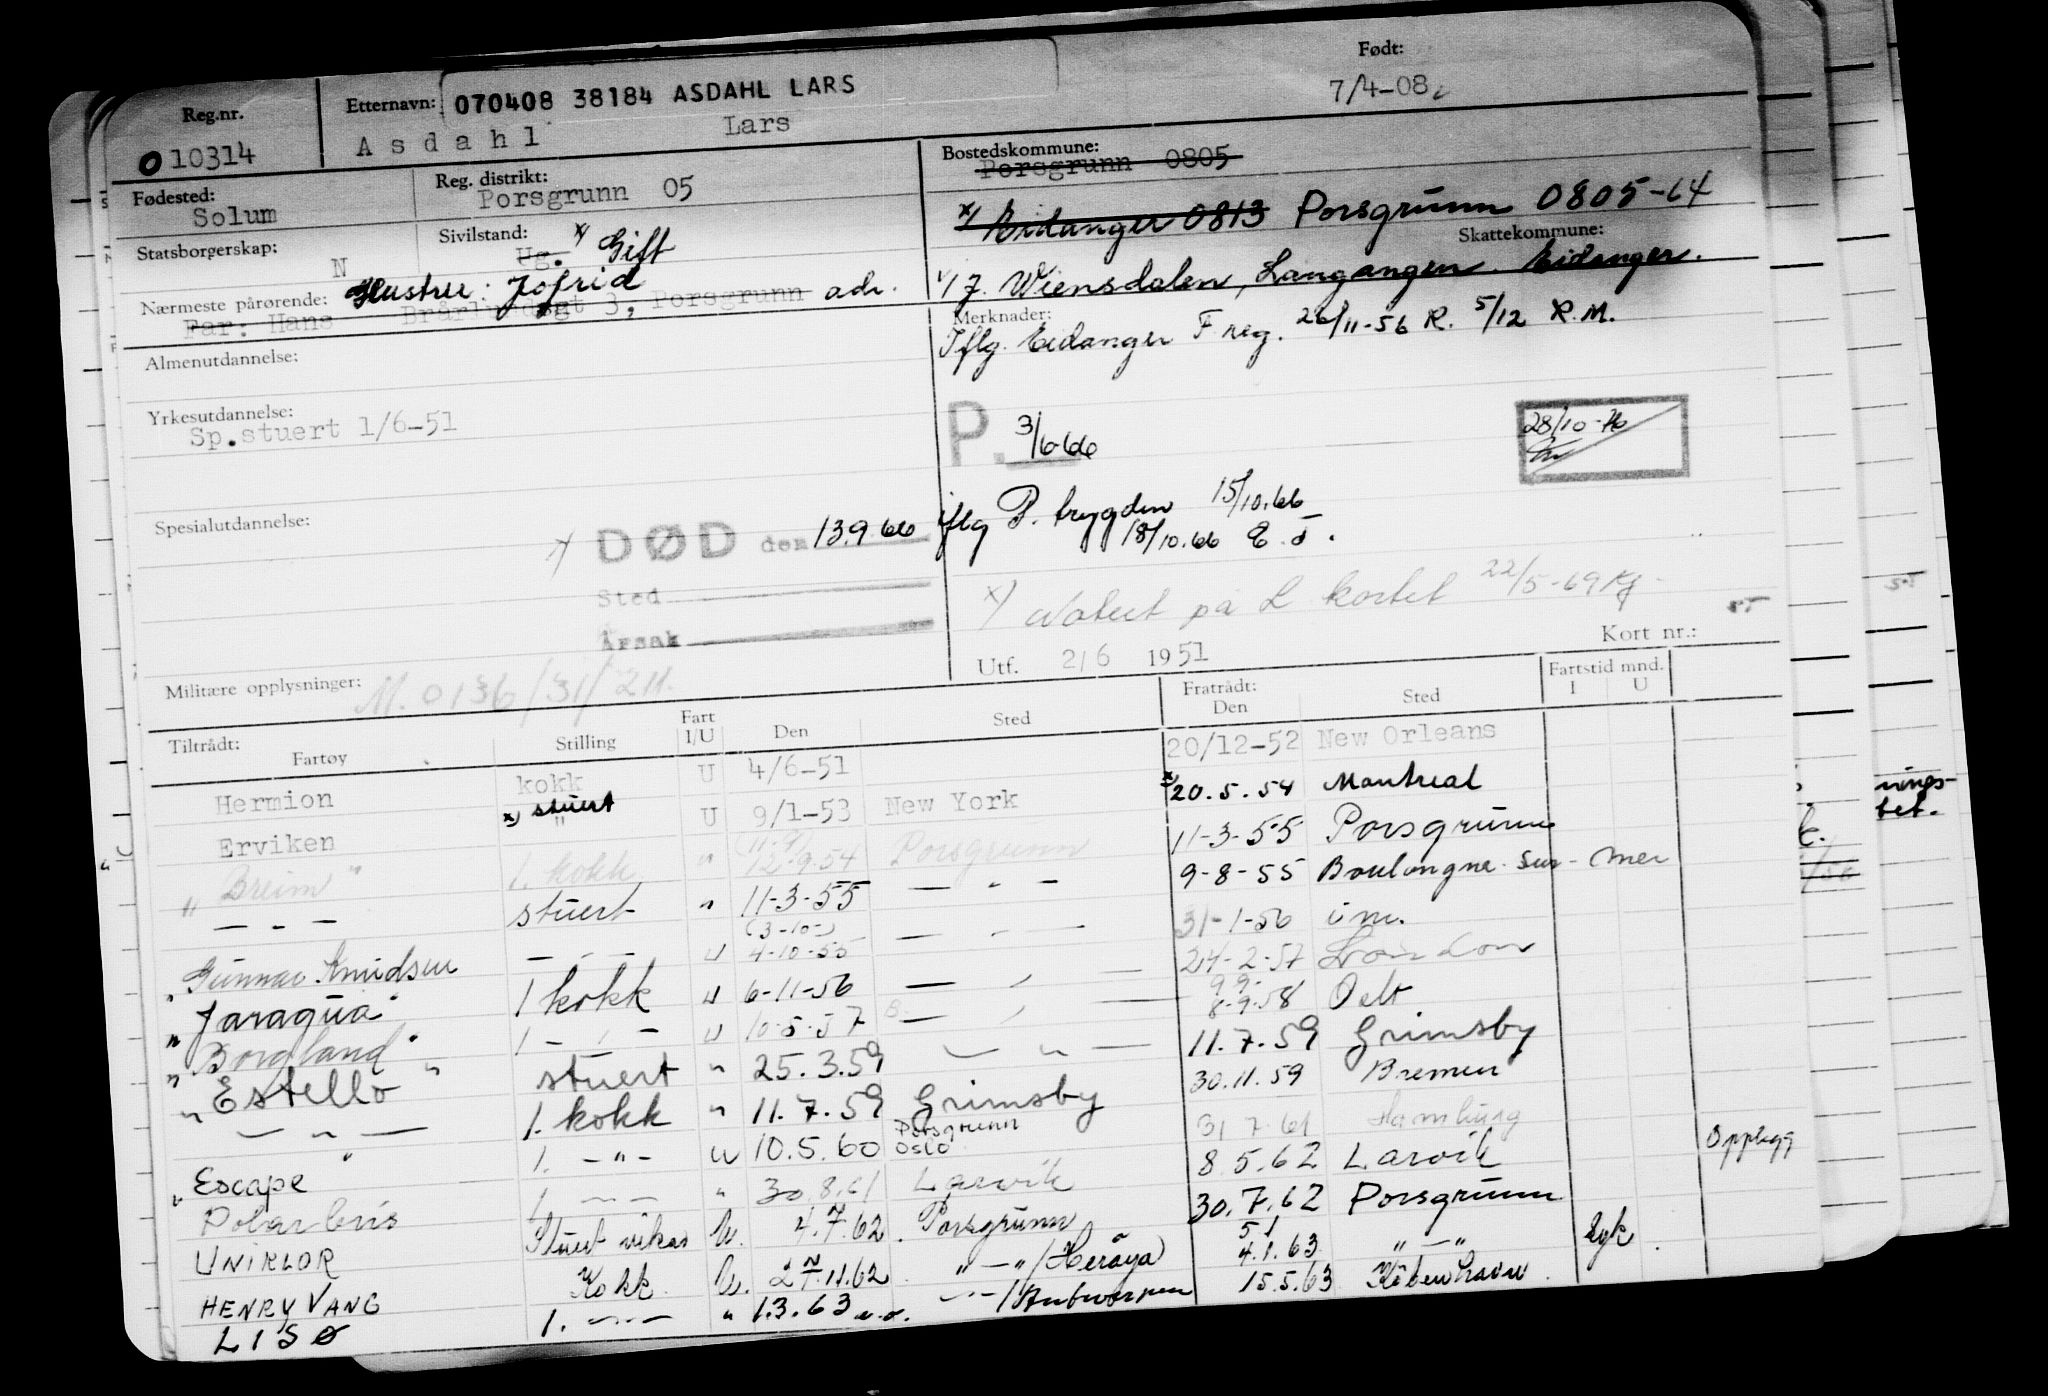 Reg.nr.
010314
Etternavn: 070408 38184 ASDAHL LARS
Asdahl Lars
Født:
7/4-08
Fødested:
Solum
Reg. distrikt:
Porsgrunn 05
Bostedskommune:
Porsgrunn 0805
x) Eidanger 0813 Porsgrunn 0805-64
Statsborgerskap:
N
Sivilstand:
Ug. x) Gift
Skattekommune:
Nærmeste pårørende: Hustru: Jofrid
Far: Hans Brårlundsgt 3, Porsgrunn adr. Wiensdalen, Langangen. Eidanger.
Almenutdannelse:
Merknader:
Iflg. Eidanger F reg. 26/11-56 R. 5/12 R.M.
Yrkesutdannelse:
Sp.stuert 1/6-51
P. 3/6-66
28/10-
Spesialutdannelse:
x) DØD den 13.9.66 iflg P. trygden 15/10.66
18/10.66 E.J.
Sted
Årsak
x) Notert på L kortet 22/5-69 Kg
Utf. 2/6 1951
Kort nr.:
Militære opplysninger: M. 0136/31/211.
Tiltrådt:
Fartøy Stilling Fart I/U Den Sted Fratrådt: Den Sted Fartstid mnd. I U
Hermion kokk U 4/6-51 20/12-52 New Orleans
Erviken x) stuert " U 9/1-53 New York x) 20.5.54 Montreal
" Breim " 1. kokk " 12-9-54 Porsgrunn 11-3-55 Porsgrunn
— " — stuert " 11-3-55 — " — 9-8-55 Boulongne-sur-mer
(3-10-)
" Gunnar Knudsen — " — U 4-10-55 — " — 31-1-56 i m.
" Jaragua " 1 kokk U 6-11-56 — " — 24-2-57 London
9 9-
" Borgland " 1 — " — U 10-5-57 — " — 8-9-58
" Estello " stuert " 25.3.59 — " — 11.7.59 Grimsby
— " — 1. kokk " 11.7.59 Grimsby 30.11.59 Bremen
Porsgrunn
" Escape " 1. — " — U 10.5.60 Oslo 31 7.61 Hamburg
Polarbris 1 — " — " 30.8.61 Larvik 8.5.62 Larvik Opplegg
UNIKLOR Stuert vikar U. 4.7.62 Porsgrunn 30.7.62 Porsgrunn
5 1
HENRY VANG Kokk U. 27.11.62 " — " / Herøya 4.1.63 " — " syk.
LISØ 1. — " — " 1.3.63 — " — / Antwerpen 15.5.63 København